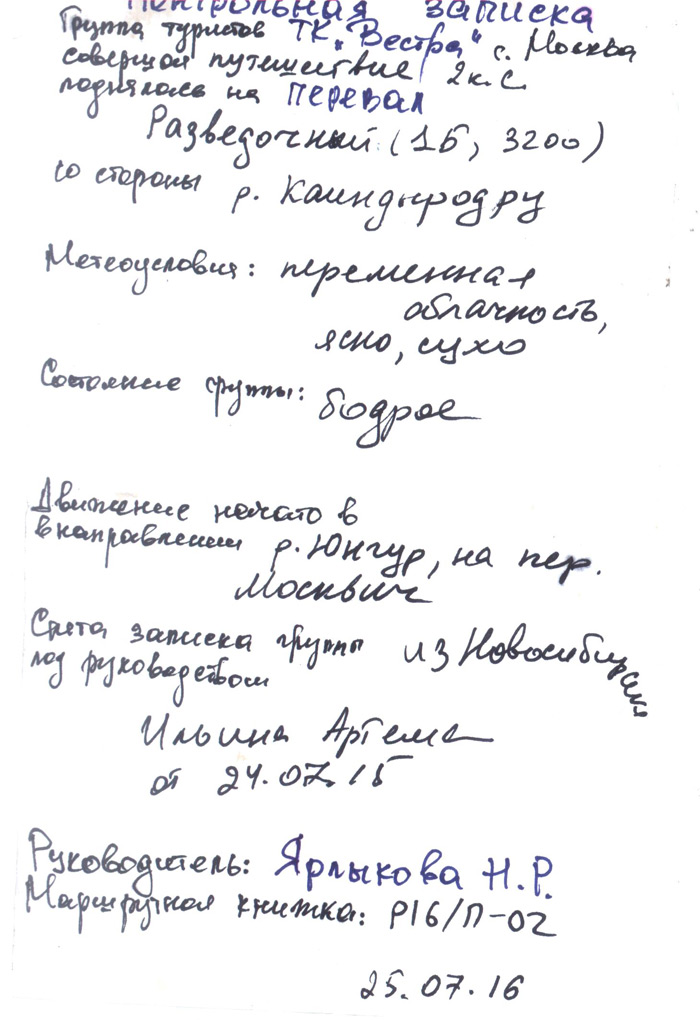 Контрольная записка
Группа туристов ТК "Вестра" г. Москва
совершая путешествие 2 к.с.
поднялась на перевал
Разведочный (1Б, 3200)
со стороны р. Каиндыродру
Метеоусловия: переменная
облачность,
ясно, сухо
Состояние группы: бодрое
Движение начато в
в направлении р. Юнгур, на пер.
Москвич
Снята записка группы из Новосибирска
под руководством
Ильина Артема
от 24.07.15
Руководитель: Ярлыкова Н.Р.
Маршрутная книжка: Р16/П-02
25.07.16